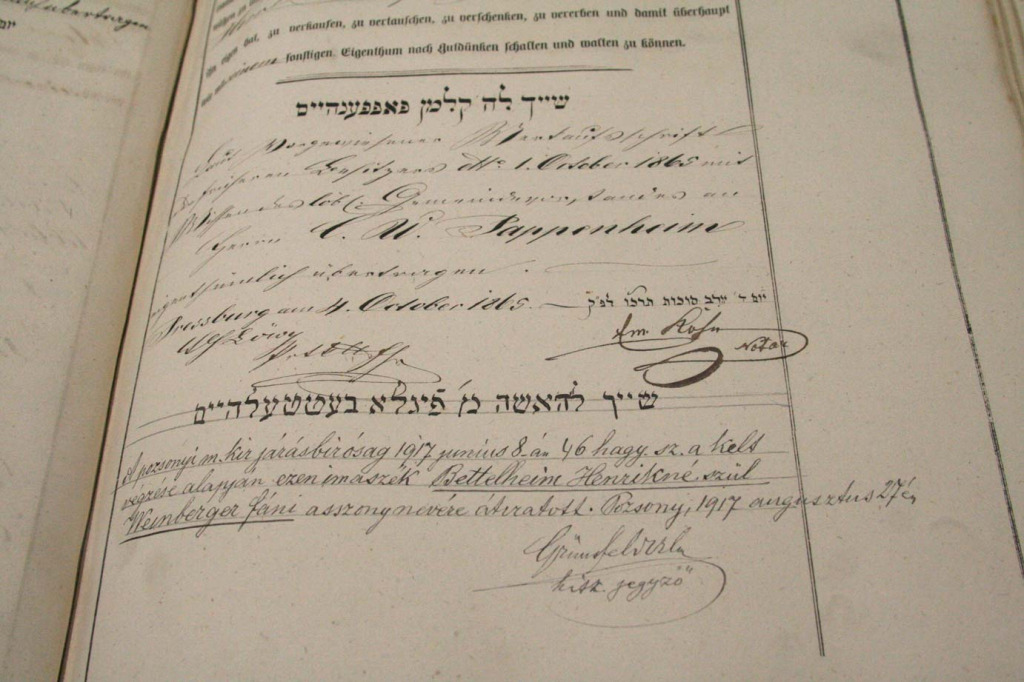 zu verkaufen, zu vertauschen, zu verschenken, zu vererben und damit überhaupt
sonstigen Eigenthum nach Gutdünken schalten und walten zu können.
שייך לה׳ קלמן פאפפענהיים
Laut Vorgewiesener Verkaufsschrift
früheren Besitzers dto 1. October 1865 mit
Wissen des löbl. Gemeindevorstandes an
Herrn C. W. Pappenheim
eigenthümlich übertragen.
Pressburg am 4. October 1865. יום ד׳ ערב סוכות תרכ״ו לפ״ק
Notar
שייך להאשה מ׳ פיגלא בעטטעלהיים
A pozsonyi m. kir járásbíróság 1917 junius 8-án 46 hagy. sz. a kelt
végzése alapján ezen imaszék Bettelheim Henrikné szül
Weinberger Fáni asszony nevére átiratott. Pozsony, 1917 augusztus 27én
Grünfeld
hitk jegyző